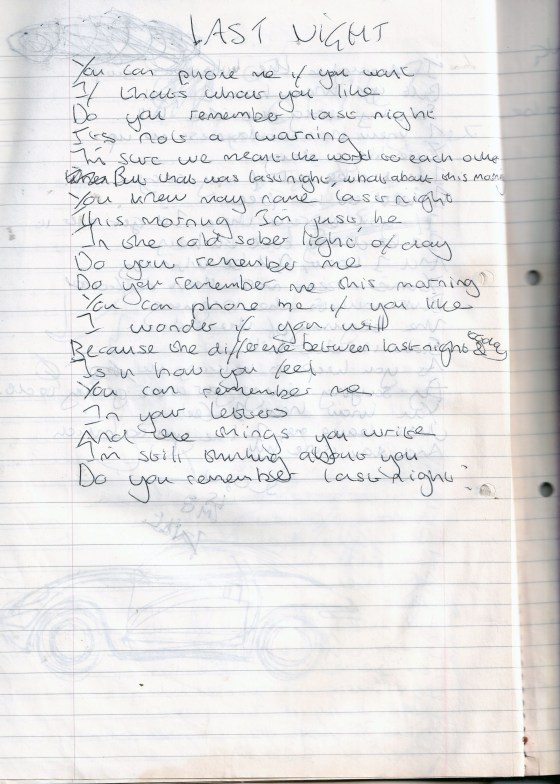 LAST NIGHT
You can phone me if you want
If thats what you like
Do you remember last night
Its not a warning
I'm sure we meant the world to each other
But that was last night, what about this morning
You knew may name last night
This morning I'm just, he
In the cold sober light of day
Do you remember me
Do you remember me this morning?
You can phone me if you like
I wonder if you will
Because the difference between last night
Is in how you feel
You can remember me
In your letters
And the things you write
I'm still thinking about you
Do you remember last Night